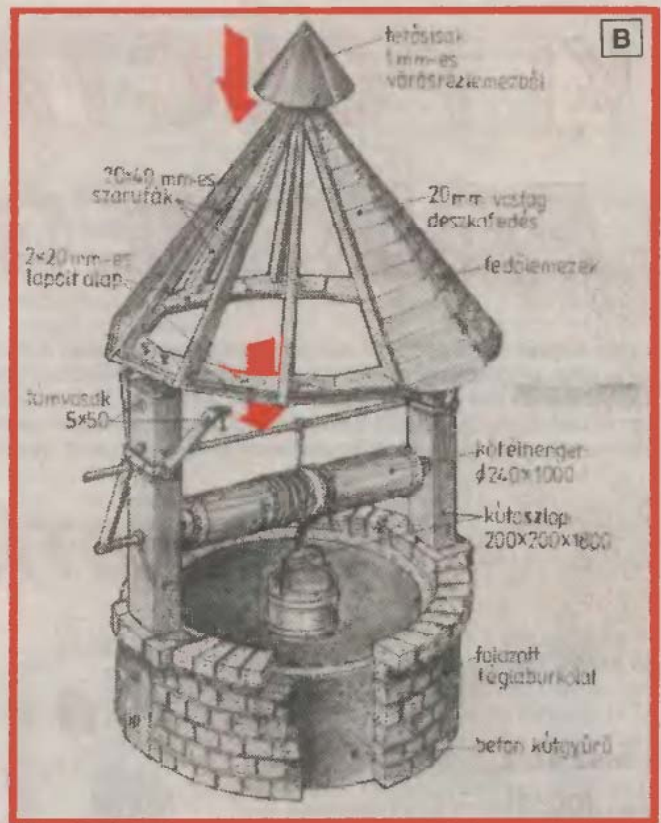 B
tetősisak
1 mm-es
vörösrézlemezből
20×40 mm-es
szarufák
20 mm vastag
deszkafedés
2×20 mm-es
lapolt alap
fedőlemezek
támvasak
5×50
kötélhenger
ϕ240×1000
kútoszlop
200×200×1800
falazott
téglaburkolat
beton kútgyűrű